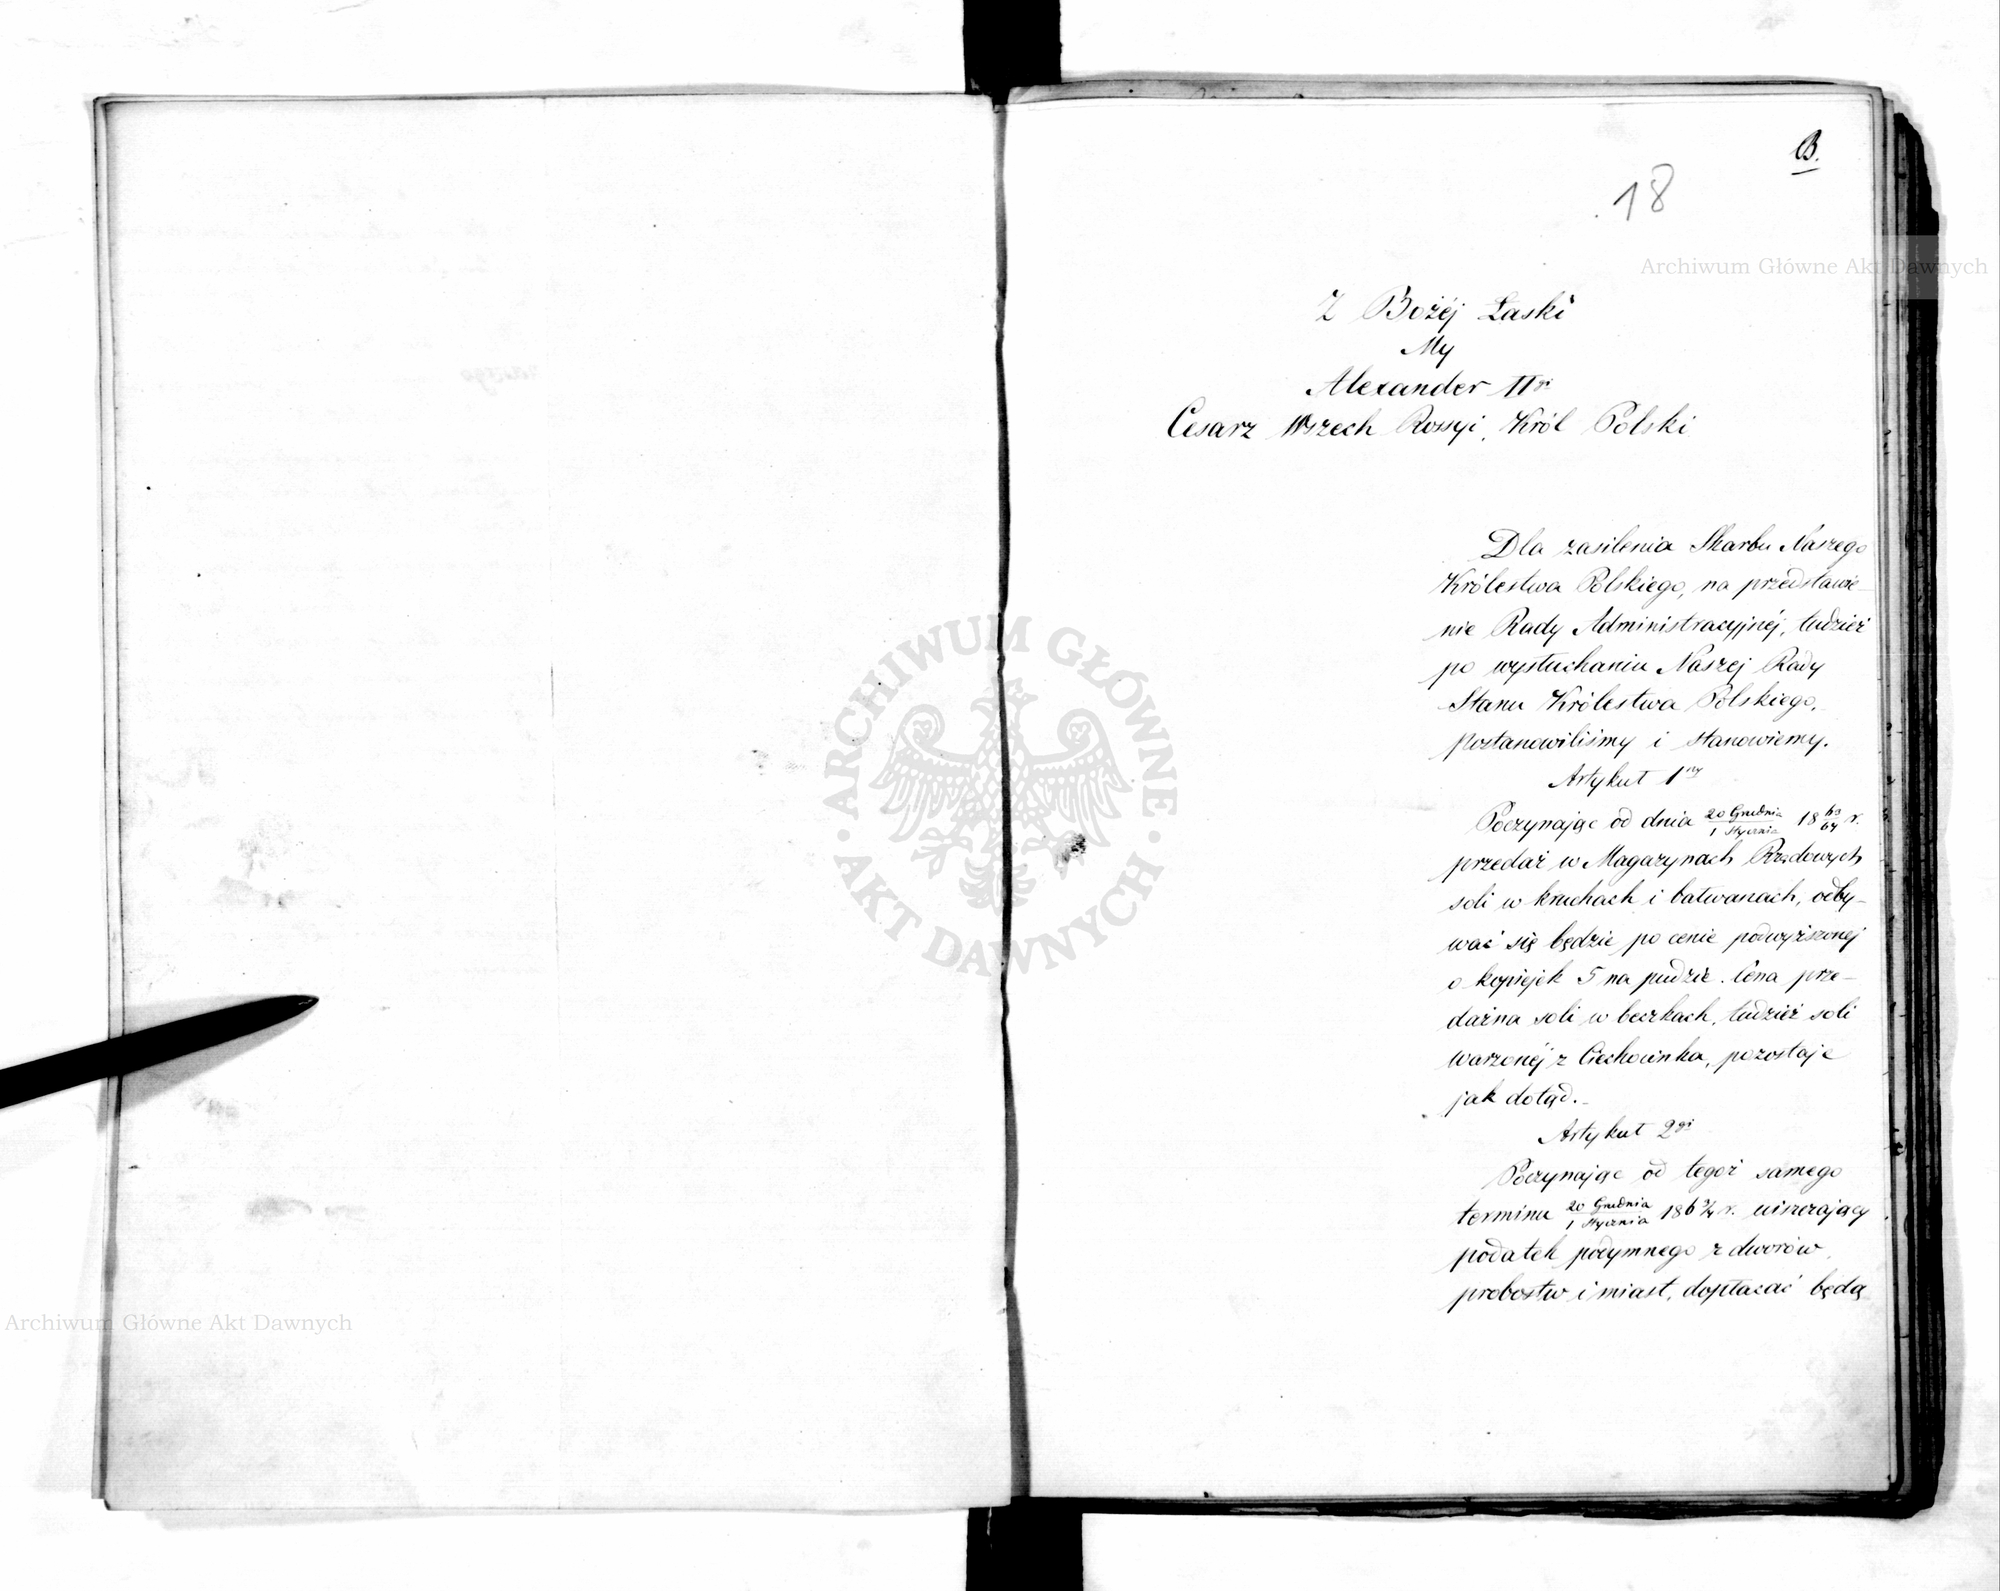 B.
18
Archiwum Główne Akt Dawnych
Z Bożéj Łaski
My
Alexander IIgi
Cesarz Wszech Rossyi, Król Polski
Dla zasilenia Skarbu Naszego
Królestwa Polskiego, na przedstawie-
nie Rady Administracyjnéj, tudzież
po wysłuchaniu Naszej Rady
Stanu Królestwa Polskiego,
postanowiliśmy i stanowiemy.
Artykuł 1ny
Poczynając od dnia 20 Grudnia/1 Stycznia 1863/64 r.
przedaż w Magazynach Rządowych
soli w kruchach i bałwanach, odby-
wać się będzie po cenie podwyższonej
o kopiejek 5 na pudzie. Cena prze-
dażna soli w beczkach, tudzież soli
warzonéj z Ciechocinka, pozostaje
jak dotąd.
Artykuł 2gi
Poczynając od tegoż samego
terminu 20 Grudnia/1 Stycznia 1863/4 r. uiszczający
podatek podymnego z dworów,
probostw i miast, dopłacać będą
ARCHIWUM GŁÓWNE · AKT DAWNYCH ·
Archiwum Główne Akt Dawnych